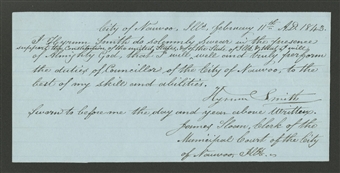 City of Nauvoo, Ills. February 11th A.D. 1843.
I Hyrum Smith do solemnly swear in the presence
support the Constitution of the United States, & of the State of Ills & that I will
of Almighty God, that I will well and truly perform
the duties of Councillor of the City of Nauvoo, to the
best of my skill and abilities.
Hyrum Smith
Sworn to before me the day and year above written
James Sloan, Clerk of the
Municipal Court of the City
of Nauvoo, Ills.